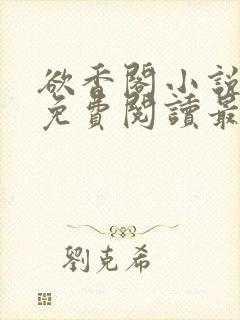 欲香閣小說
免費閱讀最
劉克希